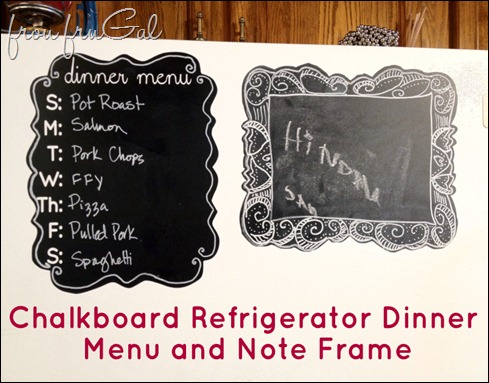 frou fruGal
dinner menu
S: Pot Roast
M: Salmon
T: Pork Chops
W: FFY
Th: Pizza
F: Pulled Pork
S: Spaghetti
Hi NDAD
SAD
Chalkboard Refrigerator Dinner
Menu and Note Frame